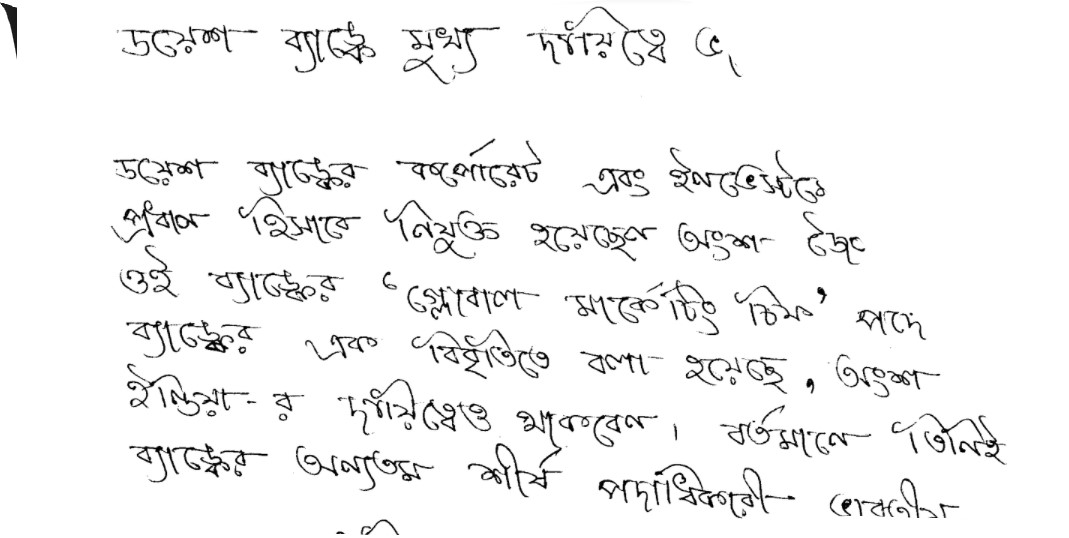 ডয়েশ ব্যাঙ্কে মুখ্য দায়িত্বে
ডয়েশ ব্যাঙ্কের কর্পোরেট এবং ইনভেস্টমে
প্রধান হিসাবে নিযুক্ত হয়েছেন অংশু জৈন
ওই ব্যাঙ্কের ‘গ্লোবাল মার্কেটিং চিফ’ পদে
ব্যাঙ্কের এক বিবৃতিতে বলা হয়েছে, অংশু
ইন্ডিয়া-র দায়িত্বেও থাকবেন। বর্তমানে তিনিই
ব্যাঙ্কের অন্যতম শীর্ষ পদাধিকারী